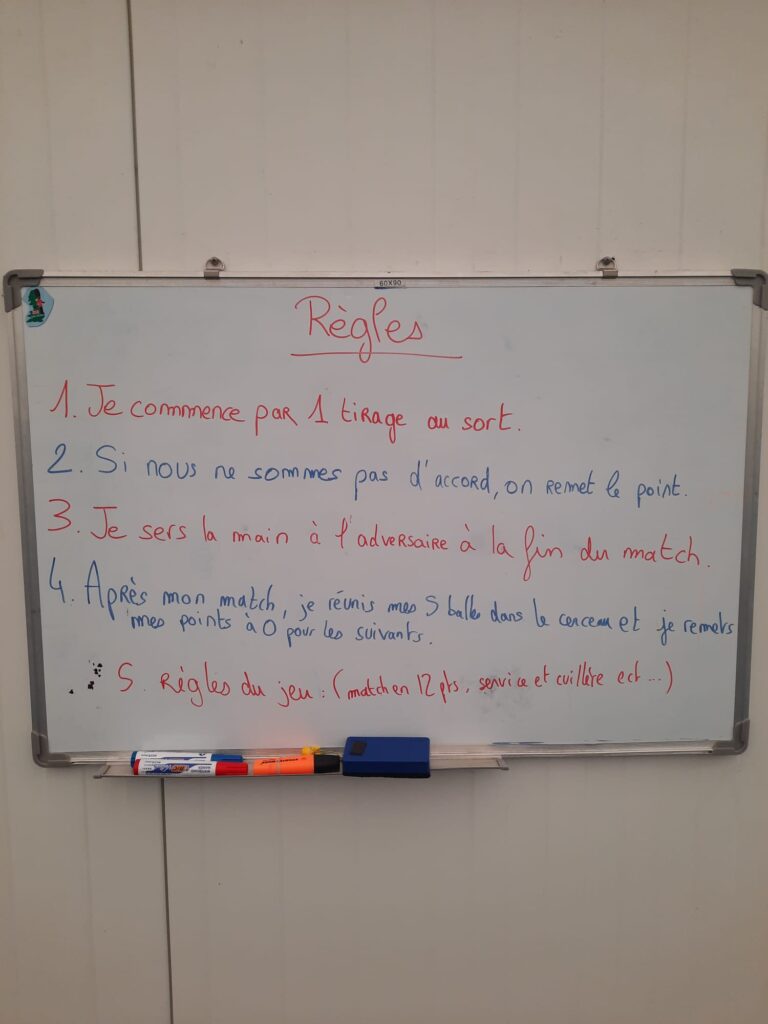 60X90
Règles
1. Je commence par 1 tirage au sort.
2. Si nous ne sommes pas d'accord, on remet le point.
3. Je sers la main à l'adversaire à la fin du match.
4. Après mon match, je réunis mes 5 balles dans le cerceau et je remets
mes points à 0 pour les suivants.
5. Règles du jeu : (match en 12 pts, service et cuillère ect ...)